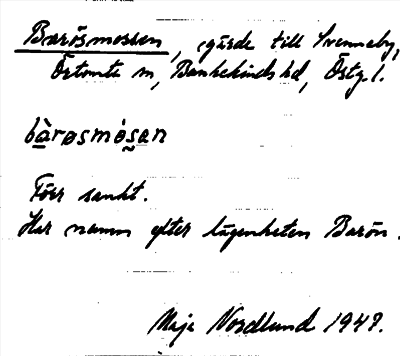 Barösmossen, gärde till Svenneby,
Örtomta sn, Bankekinds hd, Östg. l.
bàrøsmòsan
Förr sankt.
Har namn efter lägenheten Barön.
Maja Nordlund 1949.